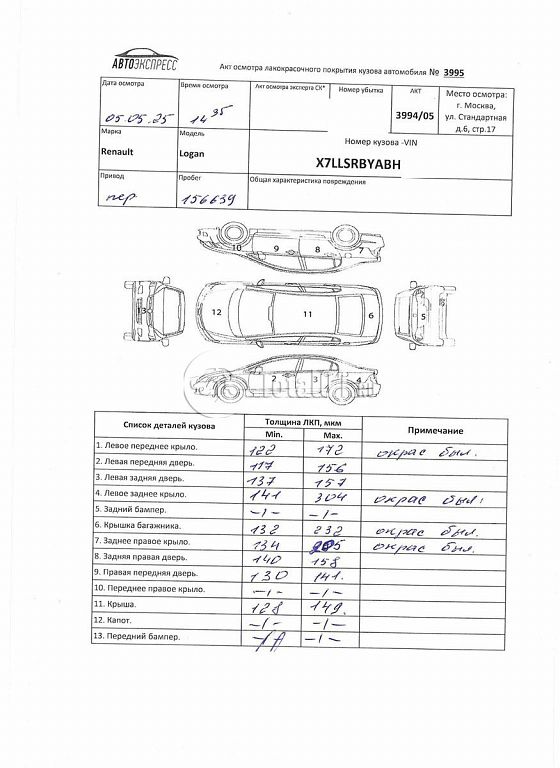 АВТОЭКСПРЕСС
Акт осмотра лакокрасочного покрытия кузова автомобиля № 3995
Дата осмотра Время осмотра Акт осмотра эксперта СК* Номер убытка АКТ Место осмотра:
05.05.25 14 35 3994/05 г. Москва, ул. Стандартная д.6, стр.17
Марка Модель Номер кузова -VIN
Renault Logan X7LLSRBYABH
Привод Пробег Общая характеристика повреждения
пер 156639
10 9 8 7
3 12 11 6 5
2 3 4
Список деталей кузова Толщина ЛКП, мкм Примечание
Min. Max.
1. Левое переднее крыло. 122 172 окрас был.
2. Левая передняя дверь. 117 156
3. Левая задняя дверь. 137 157
4. Левое заднее крыло. 141 304 окрас был.
5. Задний бампер. -/- -/-
6. Крышка багажника. 132 232 окрас был.
7. Заднее правое крыло. 134 окрас был.
8. Задняя правая дверь. 140 158
9. Правая передняя дверь. 130 141.
10. Переднее правое крыло. -/- -/-
11. Крыша. 128 149.
12. Капот. -/- -/-
13. Передний бампер. -/-